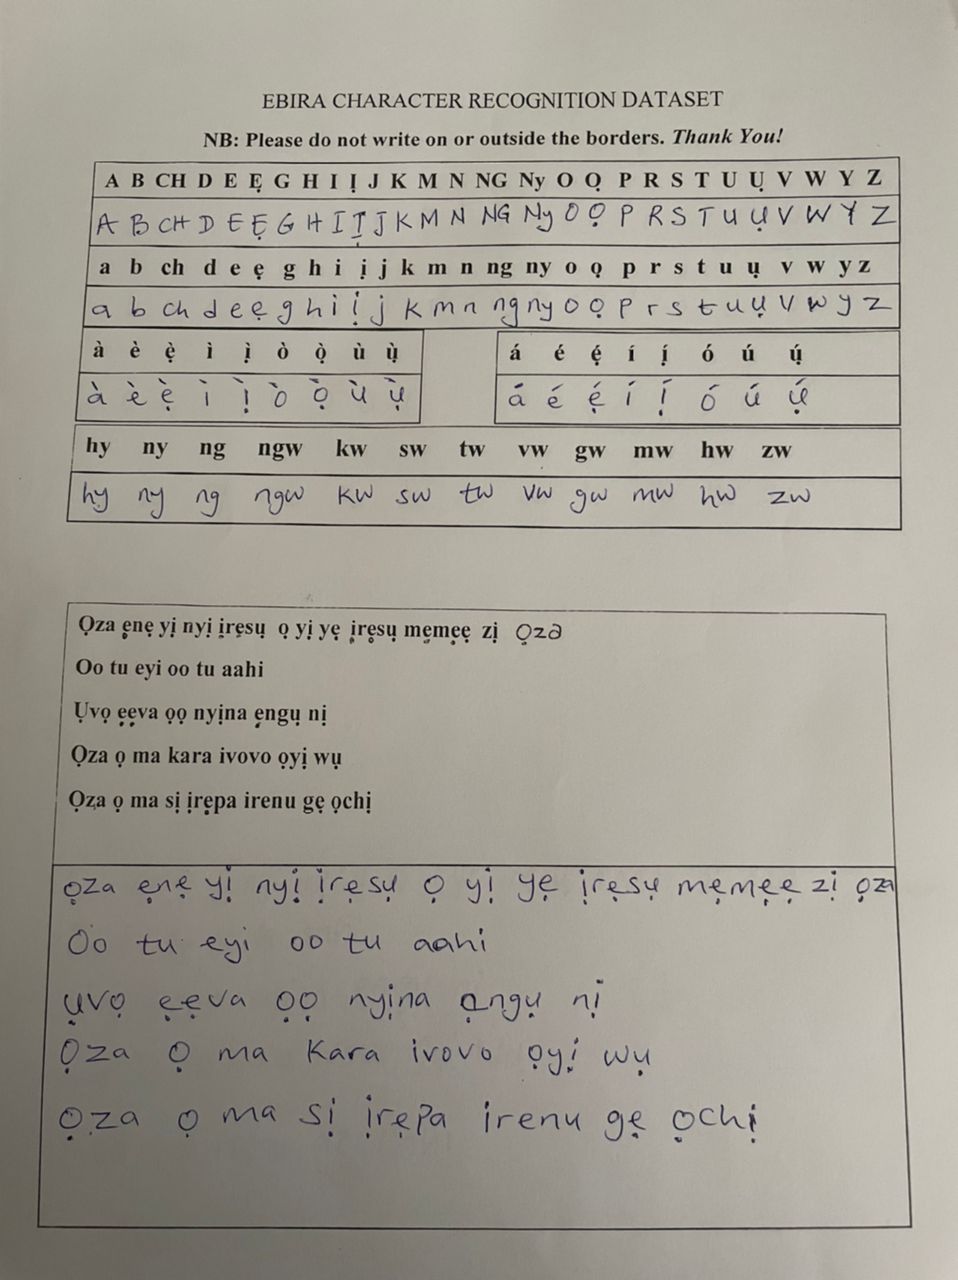 EBIRA CHARACTER RECOGNITION DATASET
NB: Please do not write on or outside the borders. Thank You!
A B CH D E Ẹ G H I Ị J K M N NG Ny O Ọ P R S T U Ụ V W Y Z
A B CH D E Ẹ G H I Ị J K M N NG Ny O Ọ P R S T U Ụ V W Y Z
a b ch d e ẹ g h i ị j k m n ng ny o ọ p r s t u ụ v w y z
a b ch d e ẹ g h i ị j k m n ng ny o ọ p r s t u ụ v w y z
à è ẹ̀ ì ị̀ ò ọ̀ ù ụ̀ á é ẹ́ í ị́ ó ú ụ́
à è ẹ̀ ì ị̀ ò ọ̀ ù ụ̀ á é ẹ́ í ị́ ó ú ụ́
hy ny ng ngw kw sw tw vw gw mw hw zw
hy ny ng ngw kw sw tw vw gw mw hw zw
Ọza ẹnẹ yị nyị ịrẹsụ ọ yị yẹ ịrẹsụ mẹmẹẹ zị ọza
Oo tu eyi oo tu aahi
Ụvọ ẹẹva ọọ nyịna ẹngụ nị
Ọza ọ ma kara ivovo ọyị wụ
Ọza ọ ma sị ịrẹpa irenu gẹ ọchị
ọza ẹnẹ yị nyị ịrẹsụ ọ yị yẹ ịrẹsụ mẹmẹẹ zị ọza
Oo tu eyi oo tu aahi
ụvọ ẹẹva ọọ nyịna ạngụ nị
Ọza ọ ma Kara ivovo ọyị wụ
Ọza ọ ma sị ịrẹpa irenu gẹ ọchị